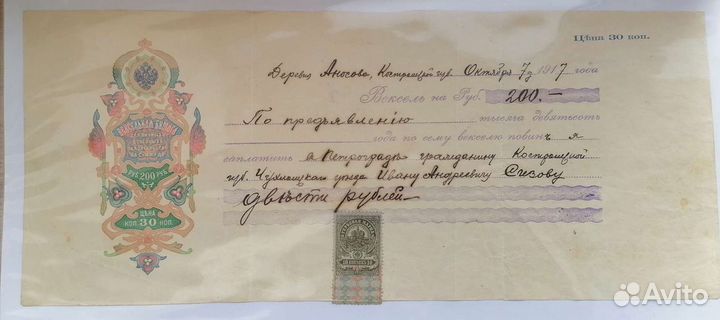 Цѣна 30 коп.
Деревня Аносова, Костромской губ. Октября 7 д 1917 года
Вексель на Руб. 200.-
По предъявленію тысяча девятьсотъ
года по сему векселю повиненъ я
заплатить в Петроградѣ гражданину Костромской
губ. Чухломскаго уѣзда Ивану Андреевичу Сизову
двѣсти рублей
ВЕКСЕЛЬНАЯ БУМАГА
РУБ. 200 РУБ.
ЦѢНА
КОП. 30 КОП.
Avito